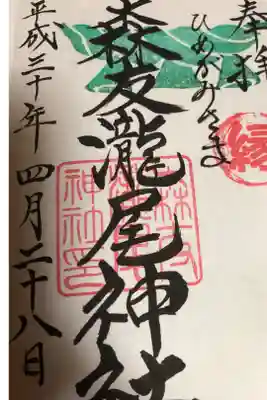 奉拝
ひめがみさま
縁
森友瀧尾神社
神社印
平成三十年四月二十八日